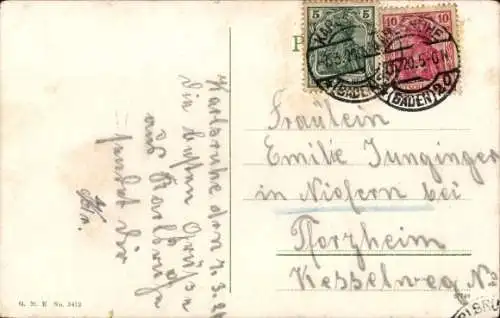 Karlsruhe den 7.3.20
die besten Grüße
aus Karlsruhe
sendet dir
G. M. K. No. 2412
5
10
(BADEN)
(BADEN)
Fräulein
Emilie Junginger
in Niefern bei
Pforzheim
Kesselweg No